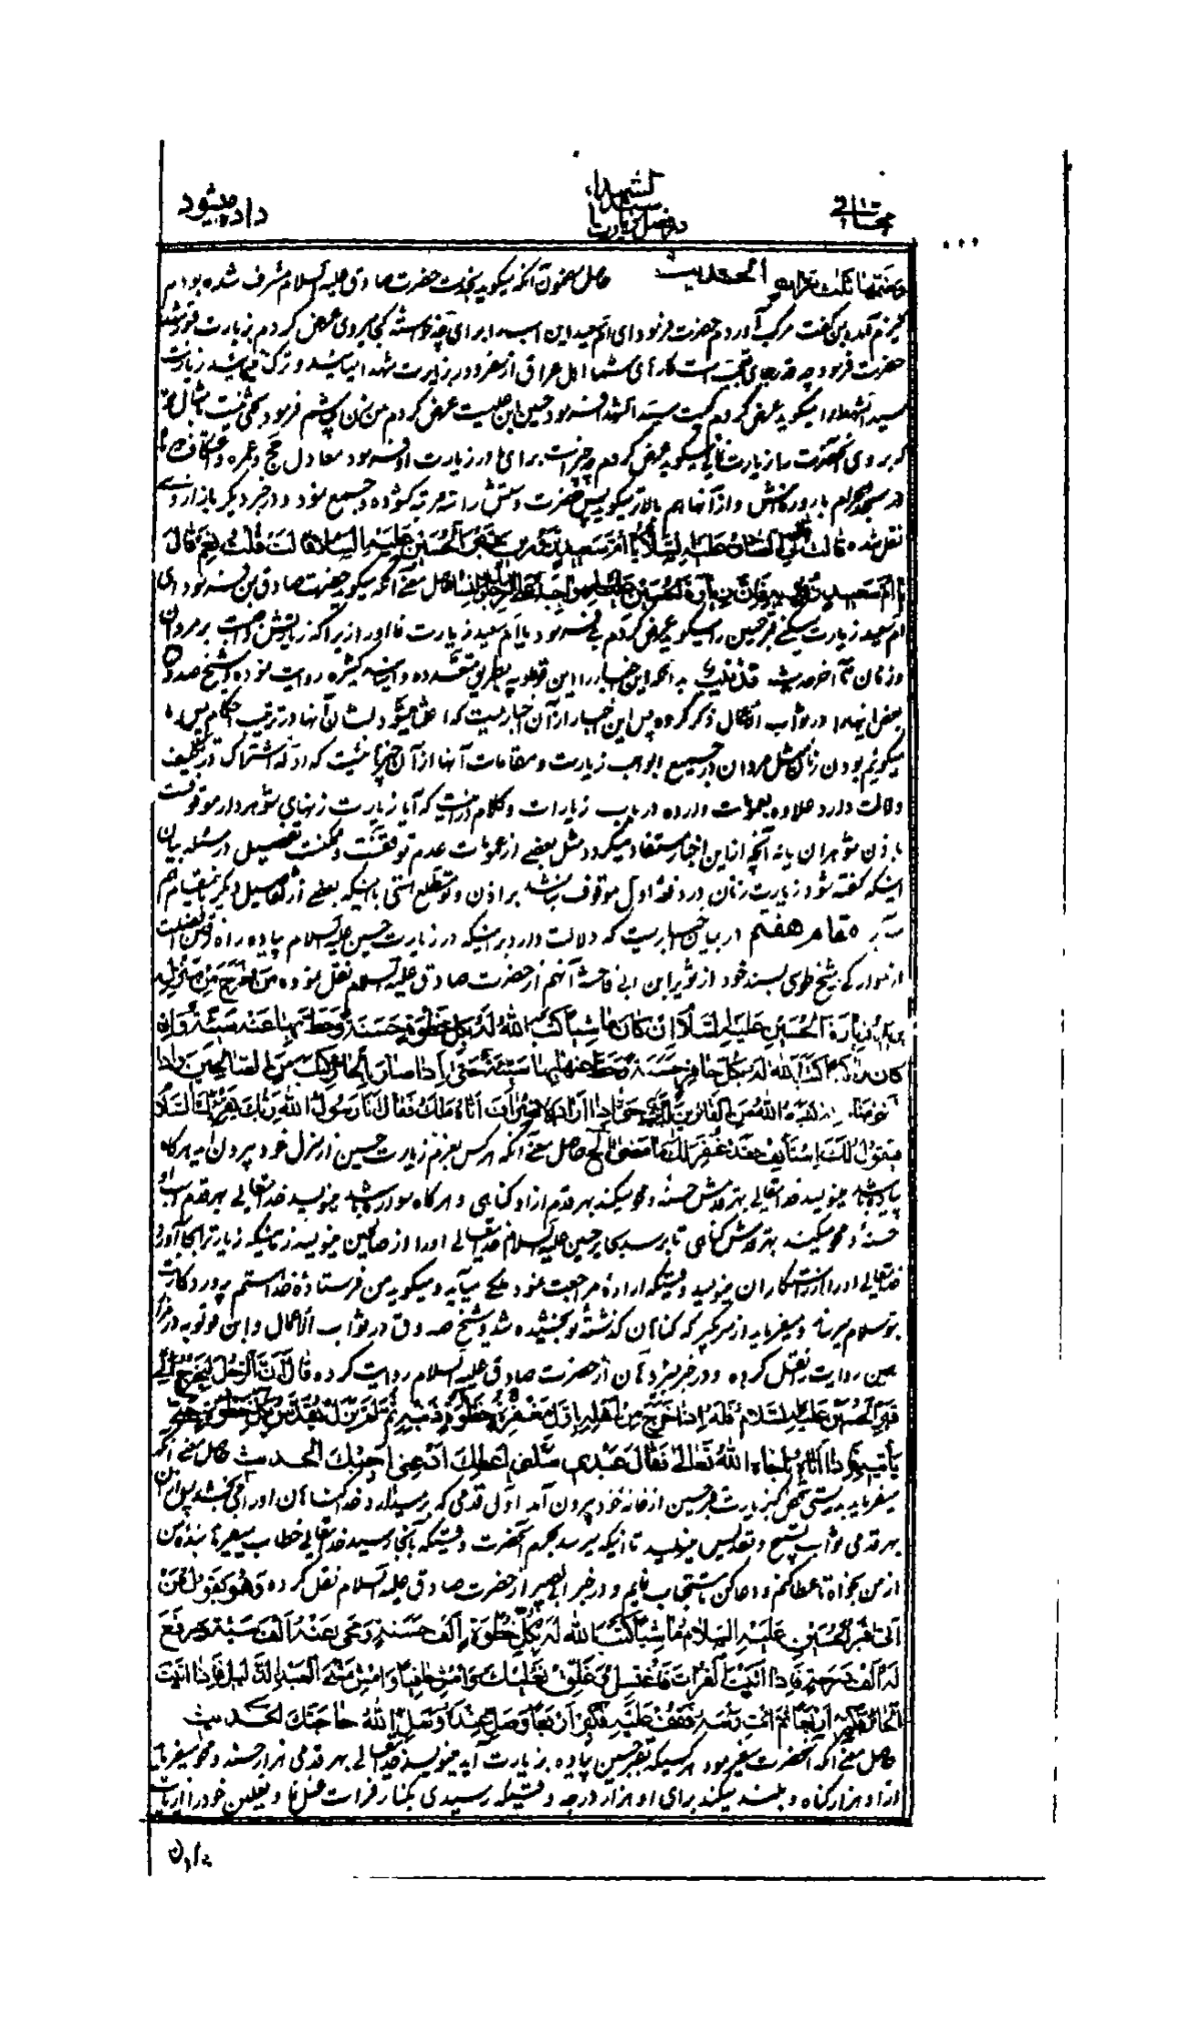 داد میشود
الشهداء
سید
در فضل زیارت
وضمتها ثلث مرات الحدیث حاصل مضمون آنکه میگوید بخدمت حضرت صادق علیه السلام مشرف شده بودم
کنیزم آمد بمن گفت مرکب آوردم حضرت فرمود ای ام سعید این اسب را برای چه خواسته کجا میروی عرض کردم بزیارت قبور شهدا
حضرت فرمود چه قدر جای تعجب است کارهای شما اهل عراق از سفر دور بزیارت شهدا میائید و ترک میکنید زیارت
سید الشهدا را میگوید عرض کردم کیست سید الشهدا فرمود حسین ابن علیست عرض کردم من زن میباشم فرمود کسی نیست مثال تو
که برود آنحضرت را زیارت نماید میگوید عرض کردم چه چیز است برای ما در زیارت او فرمود معادل حج و عمره و اعتکاف دو ماه
در مسجد الحرام با روزه‌اش و از آنها هم بالاتر میگوید پس حضرت دستش را سه مرتبه گشوده و جمع نمود و در خبر دیگر باز از وی
نقل شده قالت قال لی الصادق علیه السلام یا ام سعید تزورین قبر الحسین علیه السلام قالت قلت نعم قال
یا ام سعید زوریه فان زیارة الحسین واجبة علی الرجال والنساء حاصل معنی آنکه میگوید حضرت صادق بمن فرمود ای
ام سعید زیارت میکنی قبر حسین را میگوید عرض کردم بلی فرمود یا ام سعید زیارت نما او را زیرا که زیارتش واجب بر مردان
و زنان تا آخر حدیث
بعض اینها را در ثواب الاعمال ذکر کرده پس این اخبار از آن اخباریست که
میگوئیم بودن زنان مثل مردان در جمیع ابواب زیارت و مقامات آنها از آن چیزهائیست که ادله اشتراک در تکلیف
دلالت دارد علاوه بعمومات وارده در باب زیارات و کلام در اینست که آیا زیارت زنهای شوهر دار موقوفست
باذن شوهران یا نه آنچه از این اخبار مستفاد میگردد مثل بعضی از عمومات عدم توقفست و ممکنست تفصیل در مسئله بیان
اینکه گفته شود زیارت زنان در دفعه اول موقوف نباشد بر اذن و
مقام هفتم در بیان اخباریست که دلالت دارد بر اینکه در زیارت حسین علیه السلام پیاده راه رفتن افضلست
از سوارگی شیخ طوسی بسند خود از ثویر ابن ابی فاخته آنهم از حضرت صادق علیه السلام نقل نموده من خرج من منزله
یرید زیارة الحسین علیه السلام ان کان ماشیا کتب الله له بکل خطوة حسنة وحط بها عنه سیئة وان
کان راکبا کتب الله له بکل حافر حسنة وحط عنه بها سیئة حتی اذا صار بالحائر کتب من الصالحین واذا
قضی مناسکه کتبه الله من الفائزین حتی اذا اراد الانصراف اتاه ملک فقال انا رسول الله ربک یقرئک السلام
ویقول لک استأنف فقد غفر لک ما مضی الخ حاصل معنی آنکه هر کس بعزم زیارت حسین از منزل خود بیرون آید هرگاه
پیاده باشد مینویسد خدا بتعالی بهر قدمش حسنه و محو میکند بهر قدم از او گناهی و هرگاه سواره باشد مینویسد خدا یتعالی بهر قدم اسب او
حسنه و محو میکند بهر قدمش گناهی تا برسد بحایر حسین علیه السلام خدایتعالی او را از صالحین مینویسد زمانیکه زیارت را بجا آورد
خدایتعالی او را از رستگاران مینویسد وقتیکه اراده مراجعت نمود ملکی میآید و میگوید من فرستاده خدا هستم پروردگارت
بتو سلام میرساند و میفرماید از سر گیر که گناهان گذشته تو بخشیده شد و شیخ صدوق در ثواب الاعمال و ابن قولویه در مزار
همین روایت را نقل کرده و در خبر بشیر دهان از حضرت صادق علیه السلام روایت کرده قال ان الرجل لیخرج الی
قبر الحسین علیه السلام فله اذا خرج من اهله باول خطوة مغفرة ذنوبه ثم لم یزل یقدس بکل خطوة حتی
یأتیه فاذا اتاه ناجاه الله تعالی فقال عبدی سلنی اعطک ادعنی اجبک الحدیث حاصل معنی آنکه
میفرماید بدرستی شخصیکه بزیارت قبر حسین از خانه خود بیرون آمد اول قدمی که برمیدارد خدا گناهان او را می‌بخشد پس از آن
بهر قدمی ثواب تسبیح و تقدیس مینویسد تا آنیکه میرسد بحرم آنحضرت وقتیکه بآنجا رسید خدایتعالی خطاب میفرماید بنده من
از من بخواه تا عطا کنم و دعا کن تا مستجاب نمایم و در خبر ابی بصیر از حضرت صادق علیه السلام نقل کرده وهو یقول من
اتی قبر الحسین علیه السلام ماشیا کتب الله له بکل خطوة الف حسنة ومحی عنه الف سیئة ورفع
له الف درجة فاذا اتیت الفرات فاغتسل وعلق نعلیک وامش حافیا وامش مشی العبد الذلیل فاذا اتیت
الحائر فکبر اربعا ثم ائت رأسه فقف علیه فکبر اربعا وصل عنده وسل الله حاجتک الحدیث
حاصل معنی آنکه آنحضرت میفرمود هر کسیکه بقبر حسین پیاده بزیارت آید مینویسد خدایتعالی بهر قدمی هزار حسنه و محو میفرماید
از او هزار گناه و بلند میکند برای او هزار درجه وقتیکه رسیدی بکنار فرات غسل نما و نعلین خود را از پایت
بدران